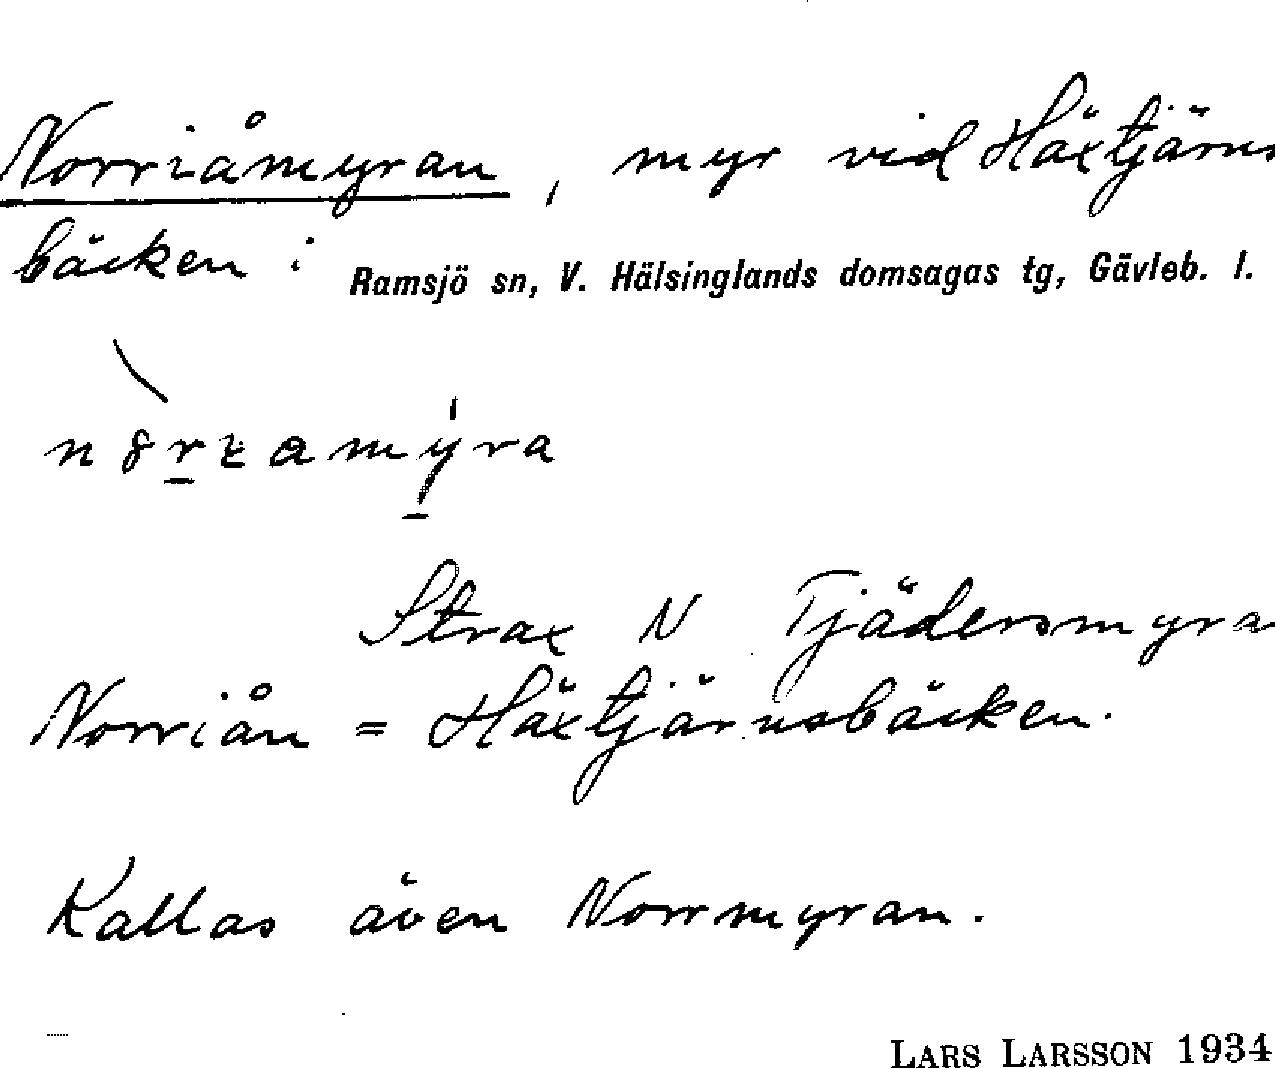 Norriåmyran, myr vid Häxtjärns
bäcken i Ramsjö sn, V. Hälsinglands domsagas tg, Gävleb. l.
Strax N Tjädersmyra
Norriån = Häxtjärnsbäcken.
Kallas även Norrmyran.
LARS LARSSON 1934